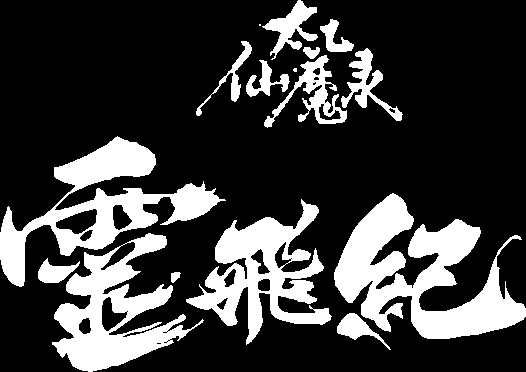 太乙
仙魔录
靈飛紀